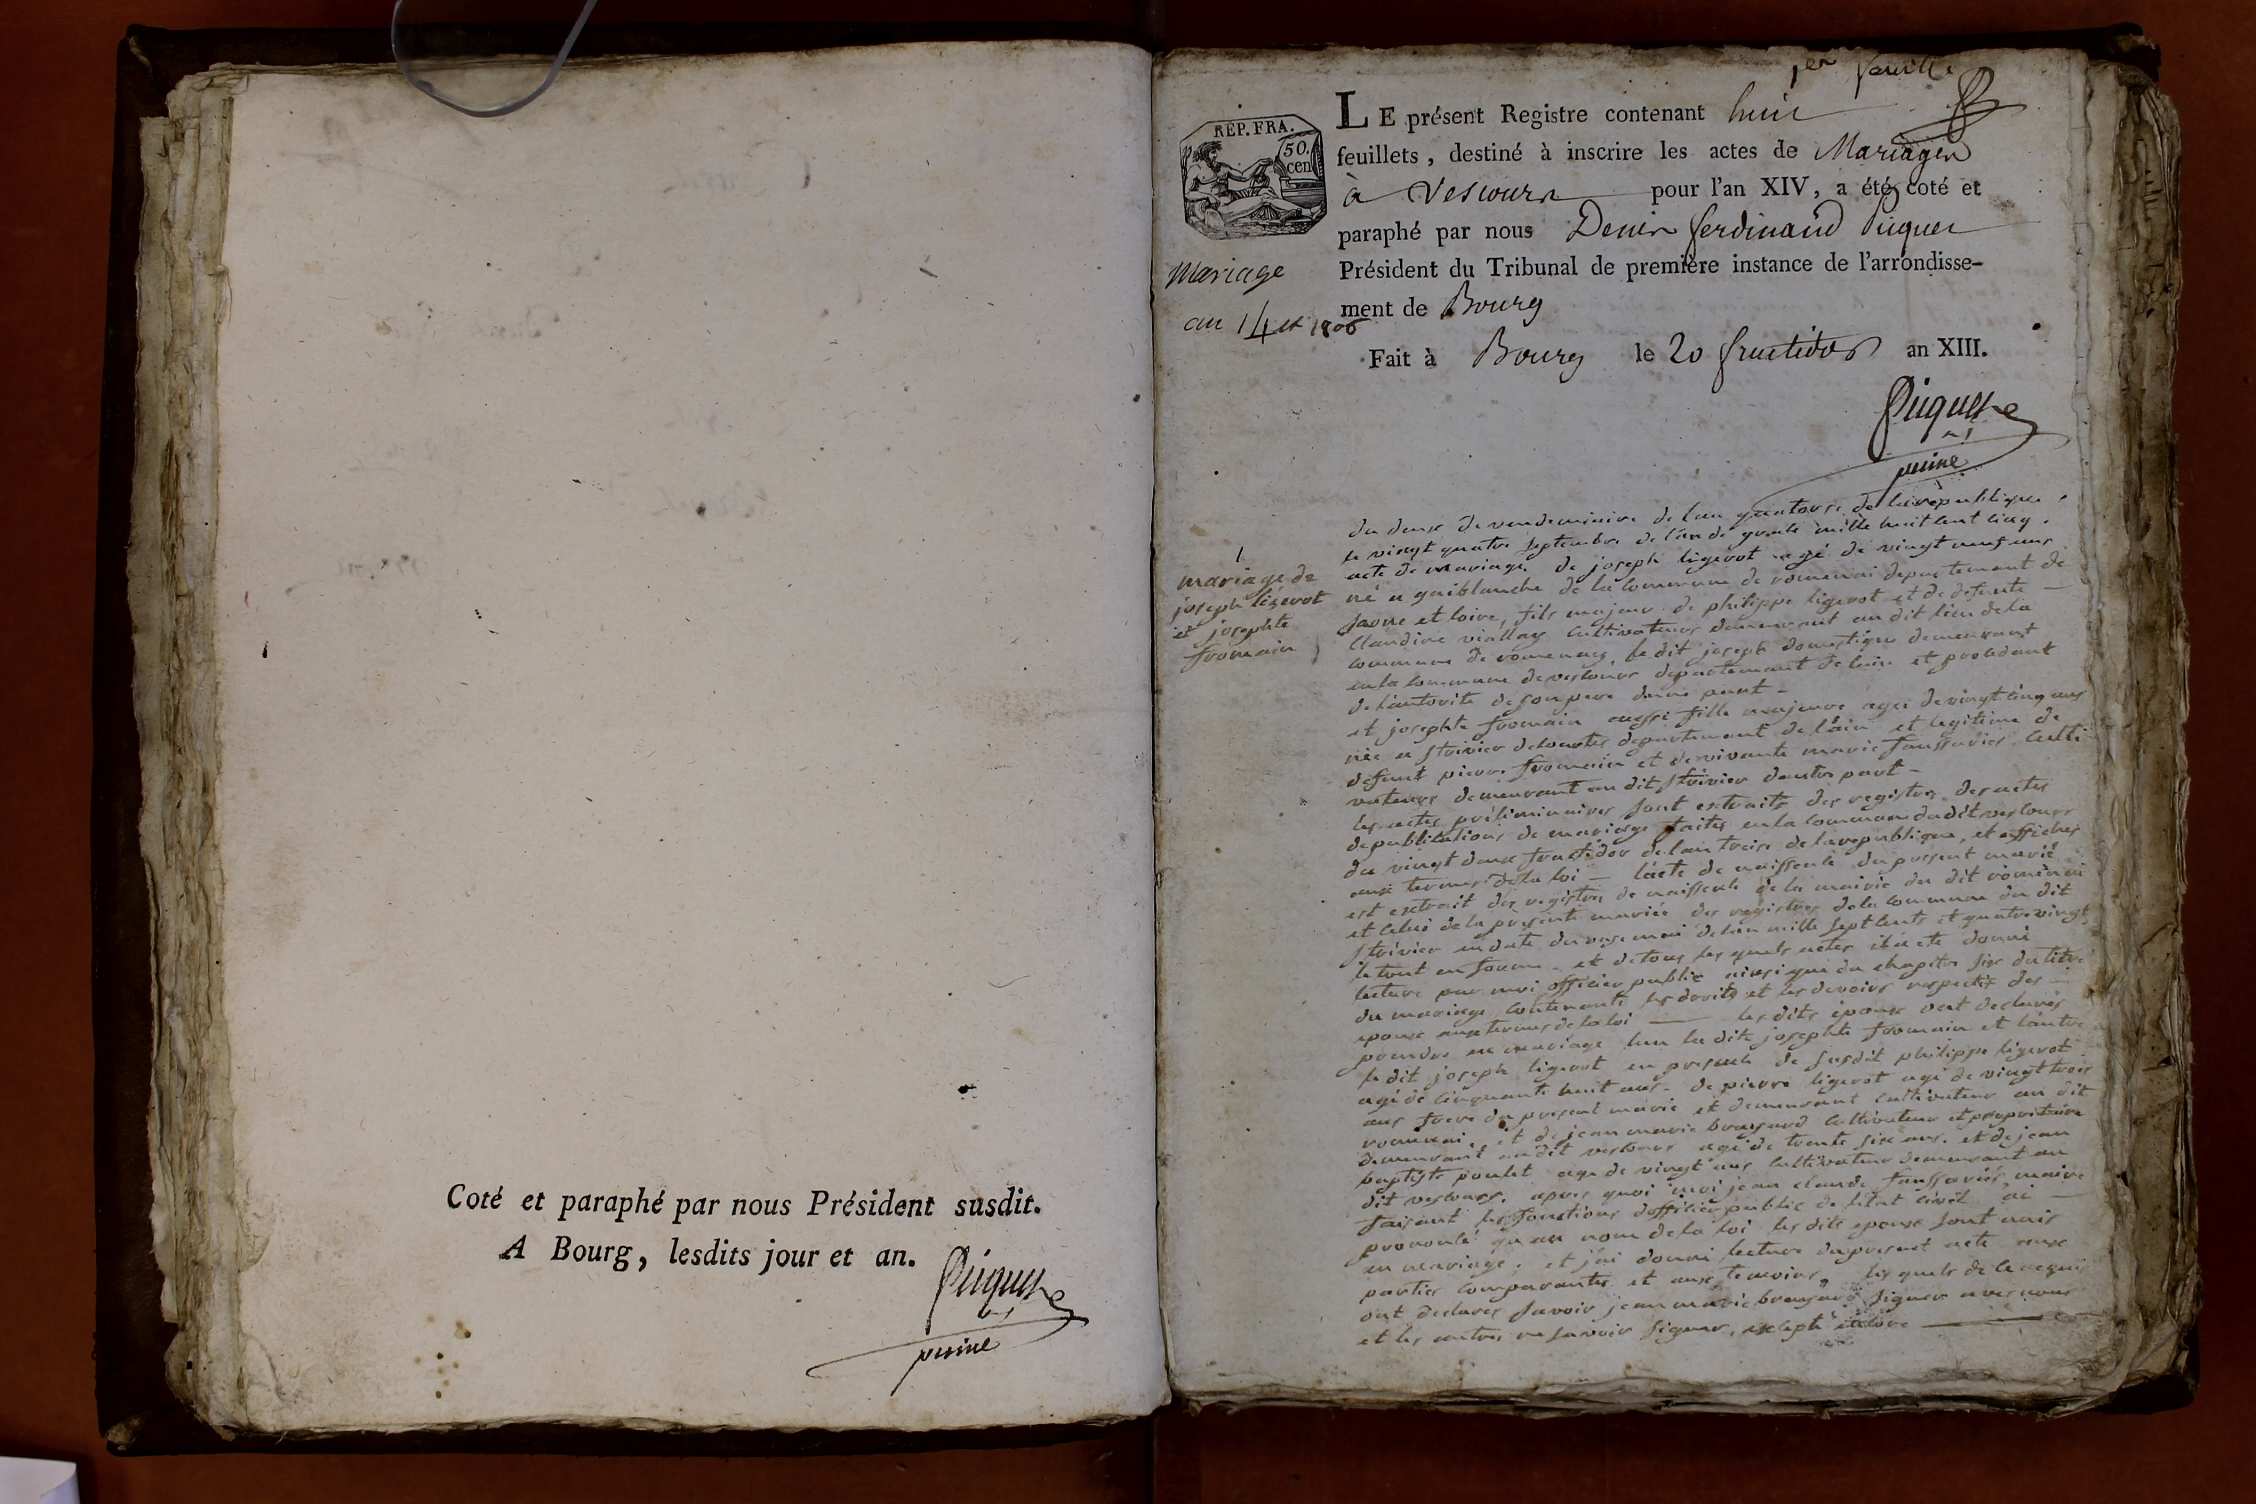 Coté et paraphé par nous Président susdit.
A Bourg, lesdits jour et an.
Picquet
1er feuillet
REP. FRA.
50.
cen
LE présent Registre contenant huit
feuillets, destiné à inscrire les actes de Mariages
à Vescours pour l'an XIV, a été coté et
paraphé par nous Denis ferdinand Picquet
Président du Tribunal de première instance de l'arrondisse-
ment de Bourg
Fait à Bourg le 20 fructidor an XIII.
Picquet
Mariage
an 14 et 1806
1
mariage de
joseph ligerot
et josephte
fromain
du deux de vendemiaire de l'an quatorze de la république,
le vingt quatre septembre de l'an de grace mille huit cent cinq.
acte de mariage de joseph ligerot agé de vingt neuf ans
né a guiblanche de la commune de romenai departement de
saone et loire, fils majeur de philippe ligerot et de defunte
Claudine viallay cultivateurs demeurant au dit lieu de la
commune de romenay, le dit joseph domestique demeurant
en la commune de vescours departement de lain et procedant
de lautorité de son pere dune part -
et josephte fromain aussi fille majeure agée de vingt cinq ans
née a st trivier de courtes departement de lain et legitime de
defunt pierre fromain et de vivante marie faussurier culti
vateurs demeurant au dit st trivier dautre part -
les actes préliminaires sont extraits des registres des actes
de publications de mariage faites en la commune du dit vescours
du vingt deux fructidor de lan treize de la republique, et affichés
aux termes de la loi - lacte de naissance du present marié
est extrait des registres de naissance de la mairie du dit romenai
et celui de la presente mariée des registres de la commune du dit
st trivier en date du onze mai de lan mille sept cents et quatre vingt,
le tout en forme. et de tous les quels actes il a été donné
lecture par moi officier public ainsi que du chapitre six du titre
du mariage contenant les droits et les devoirs respectifs des
epoux aux termes de la loi - les dits epoux ont declarés
prendre en mariage lun la dite josephte fromain et lautre
le dit joseph ligerot en presence de susdit philippe ligerot
agé de cinquante huit ans. de pierre ligerot agé de vingt trois
ans frere du present marié et demeurant cultivateur au dit
romenai. et de jean marie cultivateur et propriétaire
demeurant au dit vescours agé de trente six ans. et de jean
baptiste poulet agé de vingt ans cultivateur demeurant au
dit vescours. apres quoi moi jean claude faussurier maire
faisant les fonctions dofficier public de letat civil ai
prononcé quau nom de la loi les dits epoux sont unis
en mariage. et jai donné lecture du present acte aux
parties comparantes et aux temoins, les quels de ce requis
ont declarés savoir jean marie signer avec nous
et les autres ne savoir signer,